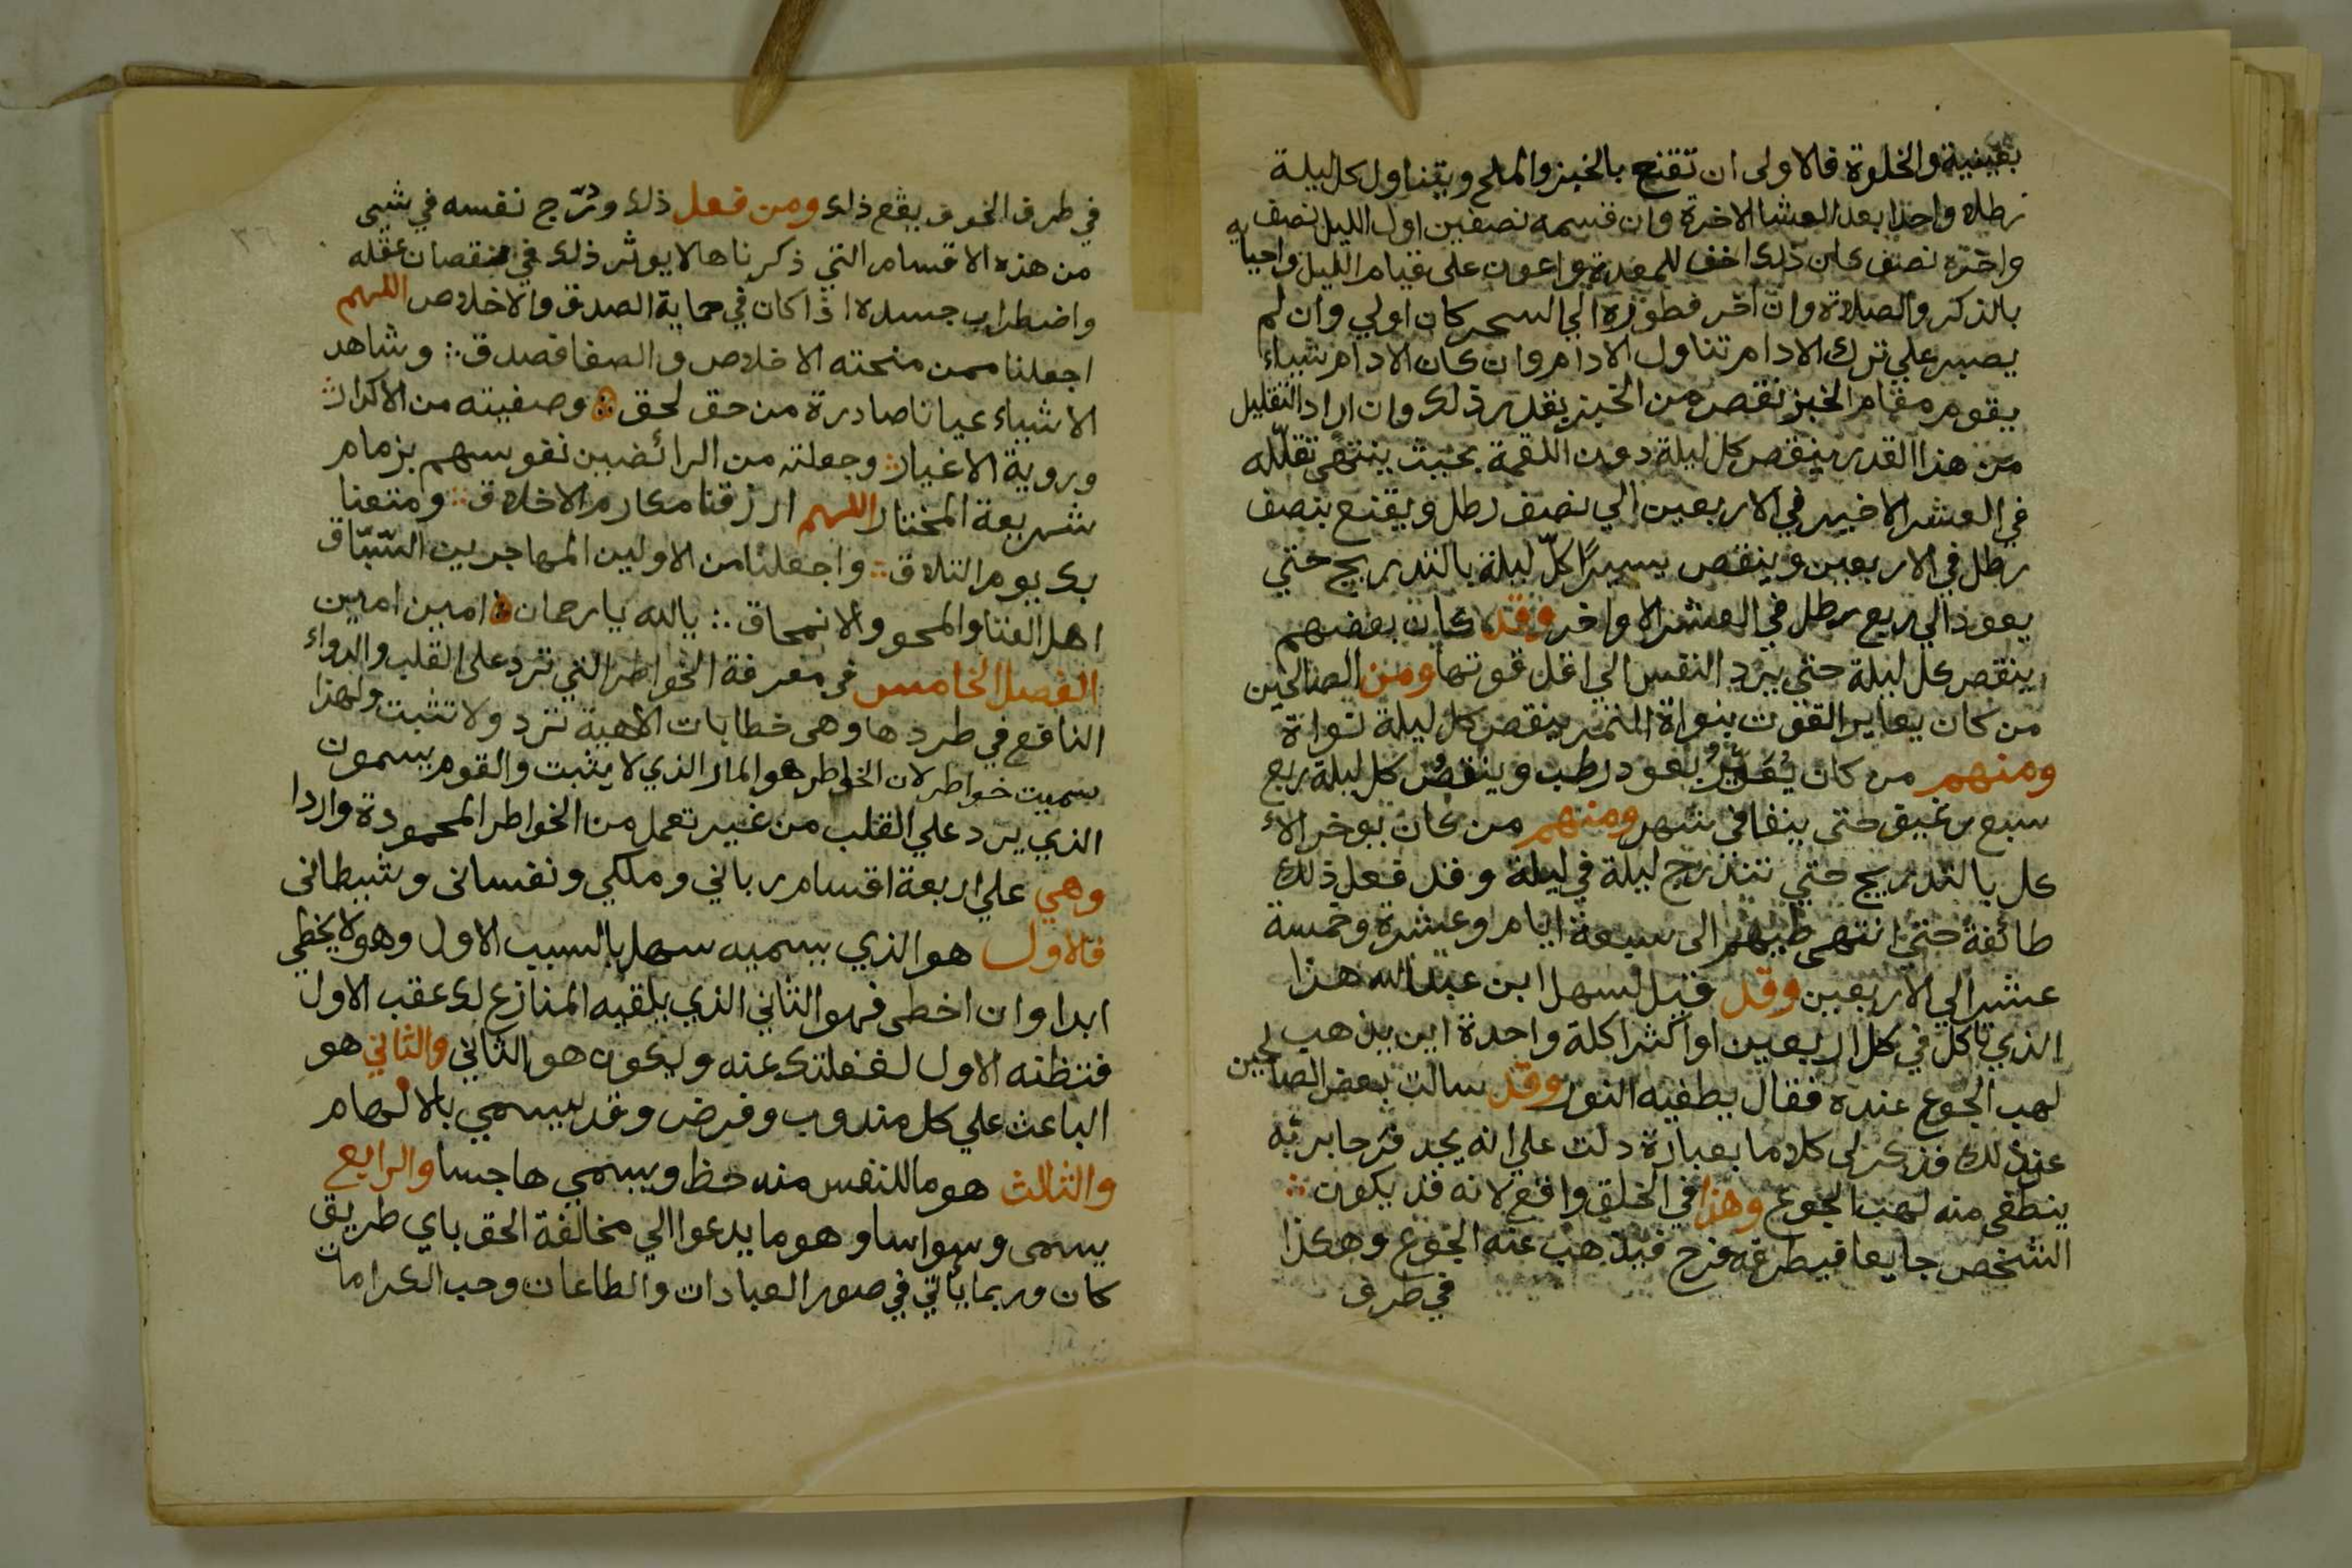 بقينية والخلوة فالاولى ان تقنع بالخبز والملح ويتناول كل ليلة
رطلا واحدا بعد العشا الاخرة وان قسمه نصفين اول الليل نصف
واخره نصف كان ذلك اخف للمعدة واعون على قيام الليل واحيايه
بالذكر والصلاة وان اخر فطوره الي السحر كان اولي وان لم
يصبر علي ترك الادام تناول الادام وان كان الادام شياء
يقوم مقام الخبز نقص من الخبز بقدر ذلك وان اراد التقليل
من هذا القدر ينقص كل ليلة دون اللقمة بحيث ينتهى تقلله
في العشر الاخير في الاربعين الي نصف رطل ويقنع بنصف
رطل في الاربعين وينقص يسيرًا كلّ ليلة بالتدريج حتي
يعود الي ربع رطل في العشر الاواخر وقد كان بعضهم
ينقص كل ليلة حتى يرد النفس الي اقل قوتها ومن الصالحين
من كان يعاير القوت بنواة التمر ينقص كل ليلة نواة
ومنهم من كان يُعَيِّرُ بعود رطب وينقصُ كل ليلة ربع
سبع رغيق حتى ينفا في شهر ومنهم من كان يوخر الا
كل بالتدريج حتي تتدرج ليلة في ليلة وقد فعل ذلك
طائفة حتي انتهى طيهم الى سبعة ايام وعشرة وخمسة
عشر الي الاربعين وقد قيل لسهل ابن عبد الله هذا
الذي تاكل في كل اربعين او اكثر اكلة واحدة اين يذهب
لهب الجوع عنده فقال يطفيه النور وقد سالت بعض الصالحين
عن ذلك فذكر لى كلاما بعبارة دلت علي انه يجد فرحا بربه
ينطفى منه لهب الجوع وهذا في الخلق واقع لانه قد يكون ∴
الشخص جايعا فيطرقه فرح فيذهب عنه الجوع وهكذا
في طرف
٣٦
في طرف الخوف يقع ذلك ومن فعل ذلك ودرّج نفسه في شيى
من هذه الاقسام التي ذكرناها لا يوثر ذلك في نقصان عقله
واضطراب جسده اذا كان في حماية الصدق والاخلاص اللهم
اجعلنا ممن منحته الاخلاص والصفا فصدق ∴ وشاهد
الاشياء عيانا صادرة من حق لحق ∴ وصفيته من الاكدار ∴
وروية الاغيار ∴ وجعلته من الرائضين نفوسهم بزمام
شريعة المختار اللهم ارزقنا مكارم الاخلاق ∴ ومتعنا
بك يوم التلاق ∴ واجعلنا من الاولين المهاجرين السّبّاق
اهل الفنا والمحو والانمحاق ∴ يالله يارحمان ∴ امين امين
الفصل الخامس فى معرفة الخواطر التي ترد على القلب والدواء
النافع في طردها وهى خطابات الاهية ترد ولا تثبت ولهذا
سميت خواطر لان الخواطر هو المار الذي لا يثبت والقوم يسمون
الذي يرد علي القلب من غير تعمل من الخواطر المحمودة واردا
وهي علي اربعة اقسام رباني وملكي ونفسانى وشيطانى
فالاول هو الذي يسميه سهل بالسبب الاول وهو لا يخطي
ابدا وان اخطى فهو الثاني الذي يلقيه المنازع لك عقب الاول
فتظنه الاول لغفلتك عنه ويكون هو الثاني والثاني هو
الباعث علي كل مندوب وفرض وقد يسمي بالالهام
والثالث هو ما للنفس منه حظ ويسمي هاجسا والرابع
يسمى وسواسا وهو ما يدعوا الي مخالفة الحق باي طريق
كان وربما ياتي في صور العبادات والطاعات وحب الكرامات